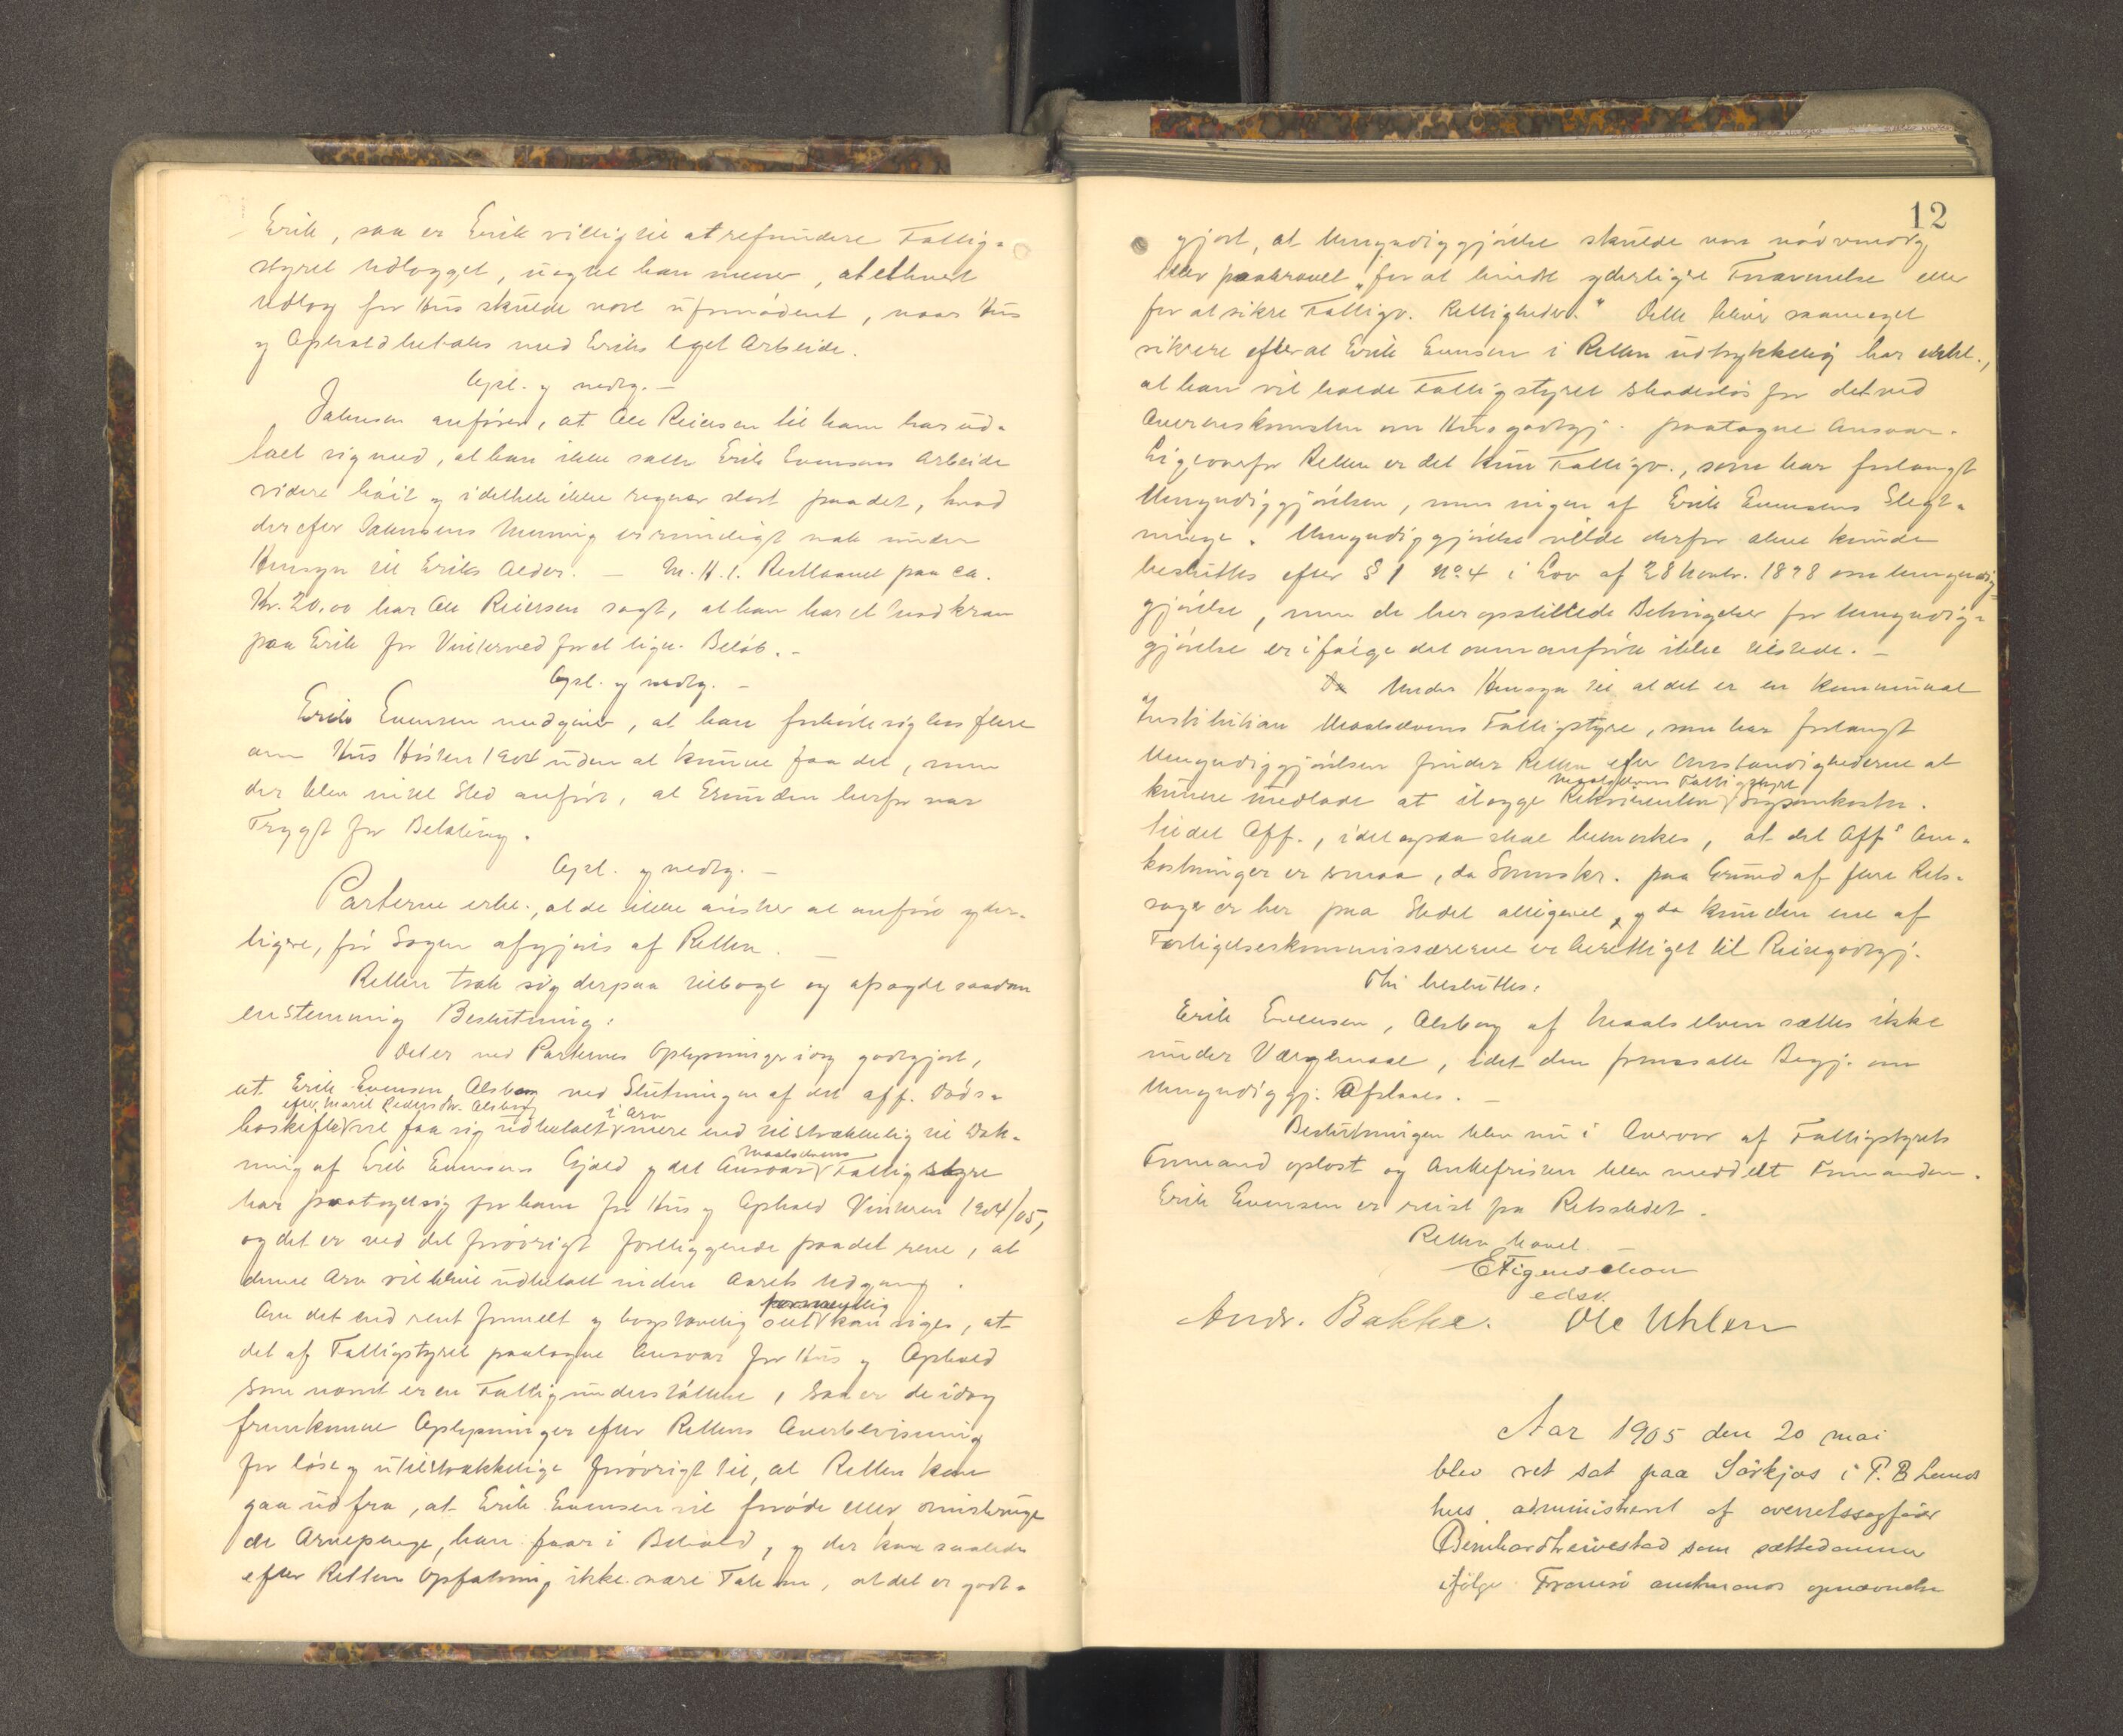 Erik, saa er Erik villig til at refundere Fattig-
styret Udlægget, uagtet han mener, at ethvert
Udlæg for Hus skulde være ufornødent, naar Hus
og Ophold betales med Eriks eget Arbeide.
Opl. og vedtg. —
Johnsen anfører, at Ole Reiersen til ham har ud-
talt sig med, at han ikke satte Erik Evensens Arbeide
videre høit og i det hele ikke regner stort paa det, hvad
der efter Johnsens Mening er rimeligt nok under
Hensyn til Eriks Alder. — M. H. t. Restkravet paa ca.
Kr. 20.00 har Ole Reiersen sagt, at han har et Modkrav
paa Erik for Vinterved for et lign. Beløb. -
Opl. og vedtg. —
Erik Evensen medgiver, at han forhørte sig hos flere
om Hus Høsten 1904 uden at kunne faa det, men
der blev intet Sted anført, at Grunden herfor var
Frygt for Betaling.
Opl. og vedtg. —
Parterne erkl., at de ikke ønsker at anføre yder-
ligere, før Sagen afgjøres af Retten. —
Retten trak sig derpaa tilbage og afsagde saadan
enstemmig Beslutning:
Det er ved Parternes Oplysninger idag godtgjort,
at Erik Evensen Alsborg ved Slutningen af det aff. Døds-
efter Marit Pedersdtr. Alsborg
i Arv
boskifte vil faa sig udbetalt mere end tilstrækkelig til Dæk-
Maalselvens
ning af Erik Evensens Gjæld og det Ansvar Fattigstyre
har paataget sig for ham for Hus og Ophold Vinteren 1904/05,
og det er ved det forøvrigt foreliggende paa det rene, at
denne Arv vil blive udbetalt inden Aarets Udgang.
Om det end rent formelt og bogstavelig seet kan siges, at
det af Fattigstyret paatagne Ansvar for Hus og Ophold
som nævnt er en Fattigunderstøttelse, saa er de idag
fremkomne Oplysninger efter Rettens Overbevisning
for løse og utilstrækkelige forøvrigt til, at Retten kan
gaa ud fra, at Erik Evensen vil forøde eller misbruge
de Arvepenge, han faar i Behold, og der kan saaledes
efter Rettens Opfatning ikke være Tale om, at det er godt-
12
gjort, at Umyndiggjørelse skulde være nødvendig
eller paakrævet "for at hindre yderligere Fornærmelse eller
for at sikre Fattigv. Rettigheder." Dette bliver saameget
sikrere efterat Erik Evensen i Retten udtrykkelig har erkl.,
at han vil holde Fattigstyret skadesløs for det ved
Overenskomsten om Husgodtgj. paatagne Ansvar.
Ligeoverfor Retten er det kun Fattigv., som har forlangt
Umyndiggjørelsen, men ingen af Erik Evensens Slegt-
ninge. Umyndiggjørelse vilde derfor alene kunde
besluttes efter § 1 No. 4 i Lov af 28 Novbr. 1898 om Umyndig-
gjørelse, men de her opstillede Betingelser for Umyndig-
gjørelse er ifølge det ovenanførte ikke tilstede. —
Under Hensyn til at det er en kommunal
Institution Maalselvens Fattigstyre, som har forlangt
Umyndiggjørelsen finder Retten efter Omstændighederne at
Maalselvens Fattigstyre
kunne undlade at ilægge Rekvirenten Sagsomkostn.
til det Off., idet ogsaa skal bemerkes, at det Offs Om-
kostninger er smaa, da Sorenskr. paa Grund af flere Rets-
sager er her paa Stedet alligevel, og da kun den ene af
Forligelseskommissærerne er berettiget til Reisegodtgj.
Thi besluttes:
Erik Evensen, Alsborg af Maalselven sættes ikke
under Værgemaal, idet den fremsatte Begj. om
Umyndiggj. Afslaaes. —
Beslutningen blev nu i Overvær af Fattigstyrets
Formand oplæst og Ankefristen blev meddelt Formanden.
Erik Evensen er reist fra Retsstedet.
Retten hævet.
E Figenschou
edsv.
Andr. Bakke. Ole Uhlen
Aar 1905 den 20 mai
blev ret sat paa Sørkjos i P. B Lunds
hus administreret af overretssagfører
Bernhard som sættedommer
ifølge Tromsø amtmands opnævnelse